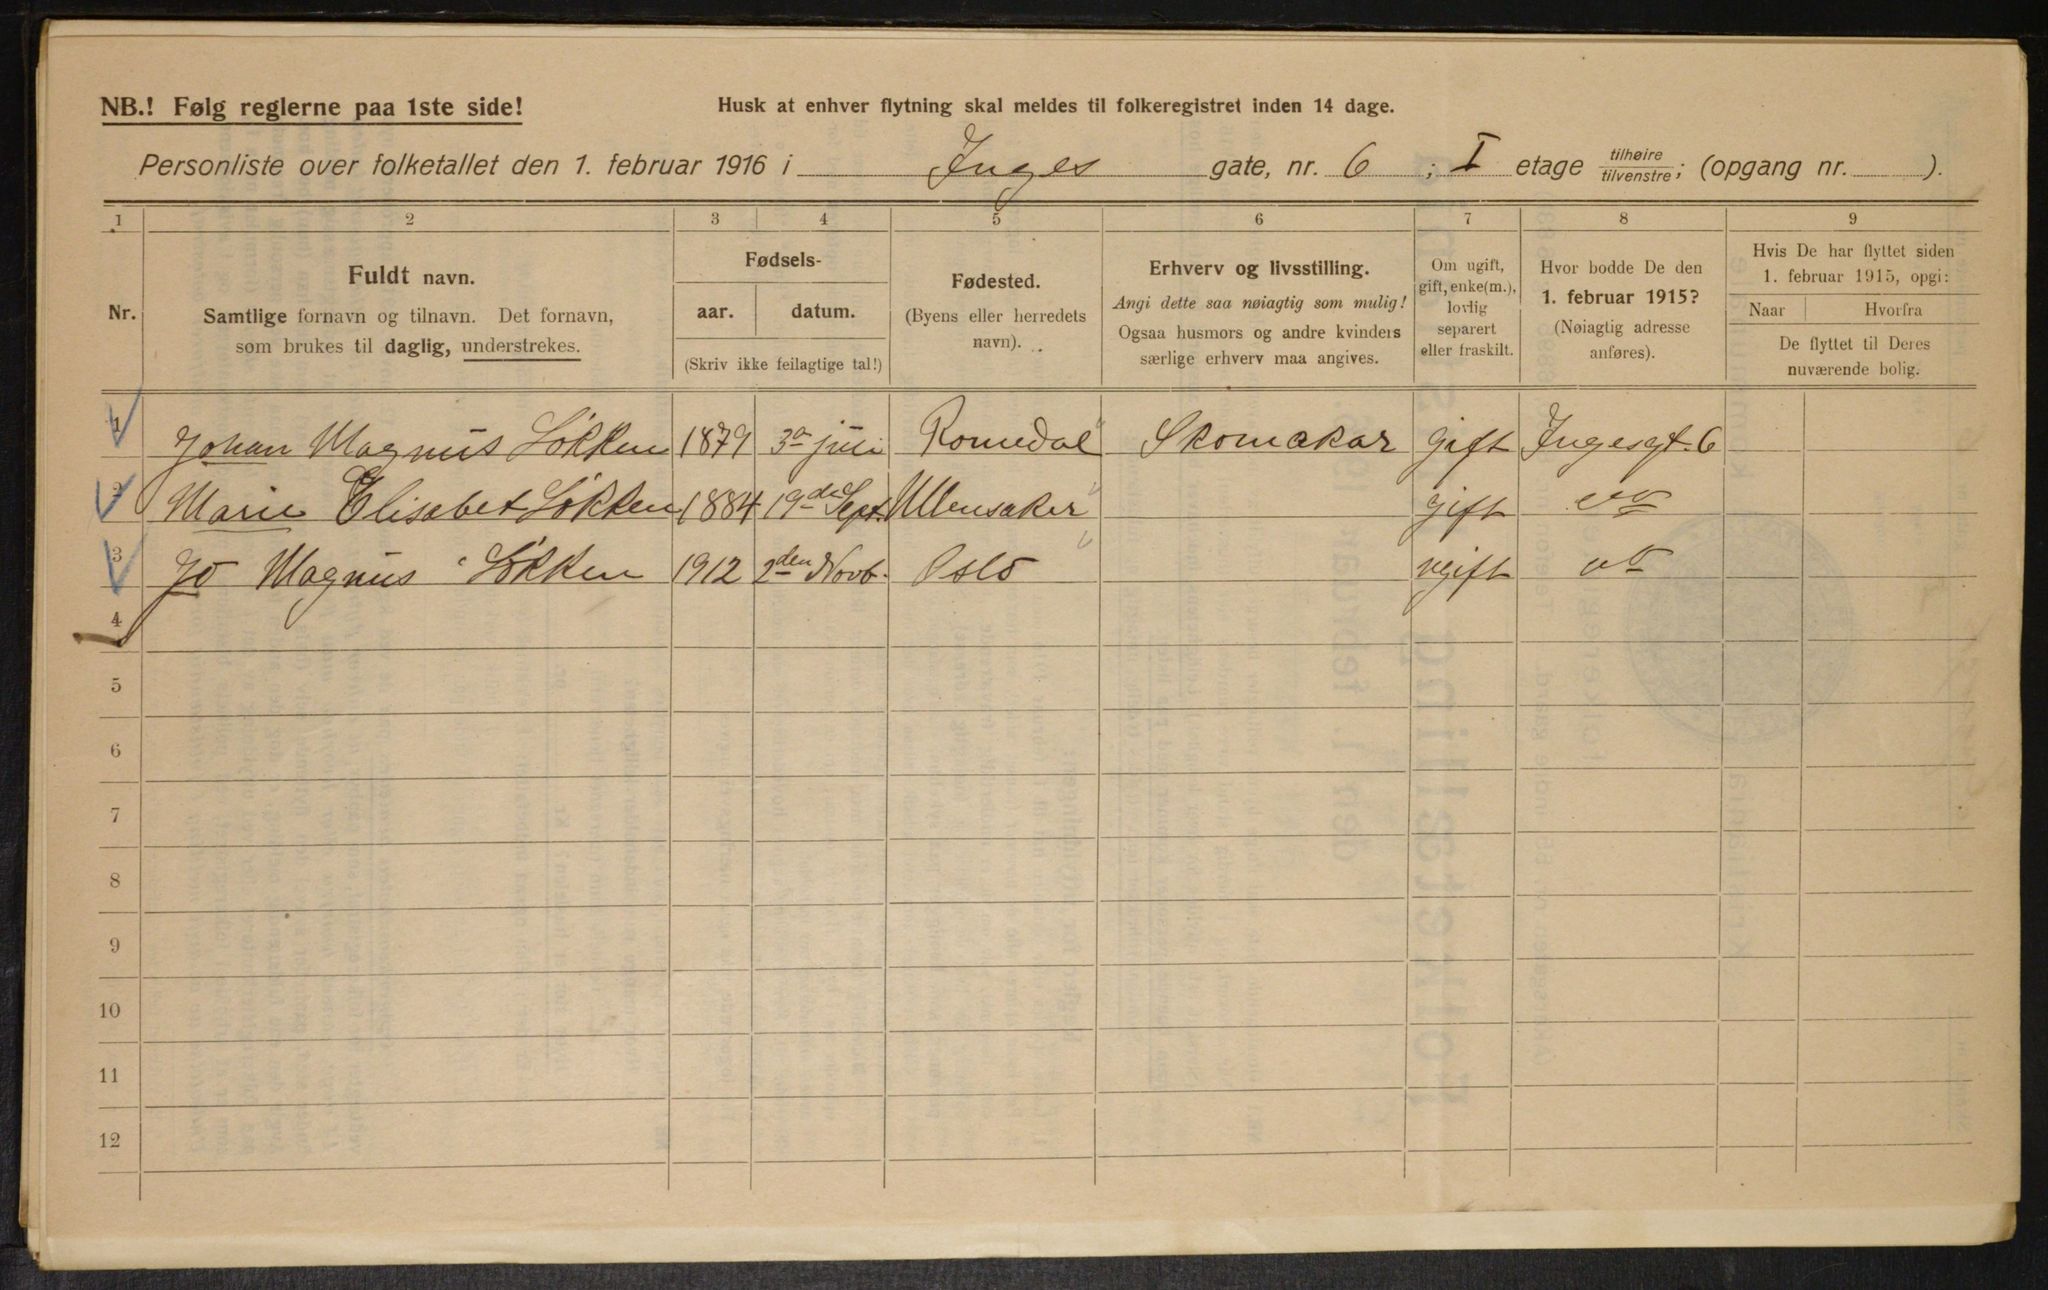 NB.! Følg reglerne paa 1ste side!
Husk at enhver flytning skal meldes til folkeregistret inden 14 dage.
Personliste over folketallet den 1. februar 1916 i Inges gate, nr. 6 ; I etage tilhøire/tilvenstre; (opgang nr. ).
1 2 3 4 5 6 7 8 9
Nr.
Fuldt navn.
Samtlige fornavn og tilnavn. Det fornavn,
som brukes til daglig, understrekes.
Fødsels-
aar. datum.
(Skriv ikke feilagtige tal!)
Fødested.
(Byens eller herredets
navn).
Erhverv og livsstilling.
Angi dette saa nøiagtig som mulig!
Ogsaa husmors og andre kvinders
særlige erhverv maa angives.
Om ugift,
gift, enke(m.),
lovlig
separert
eller fraskilt.
Hvor bodde De den
1. februar 1915?
(Nøiagtig adresse
anføres).
Hvis De har flyttet siden
1. februar 1915, opgi:
Naar Hvorfra
De flyttet til Deres
nuværende bolig.
1 Johan Magnus Løkken 1879 Romedal Skomakar gift Ingesgt. 6
2 Marie Elisabet Løkken 1884 19de Sept. Ullensaker gift
3 Jo Magnus Løkken 1912 2den Novb. Oslo ugift
4
5
6
7
8
9
10
11
12